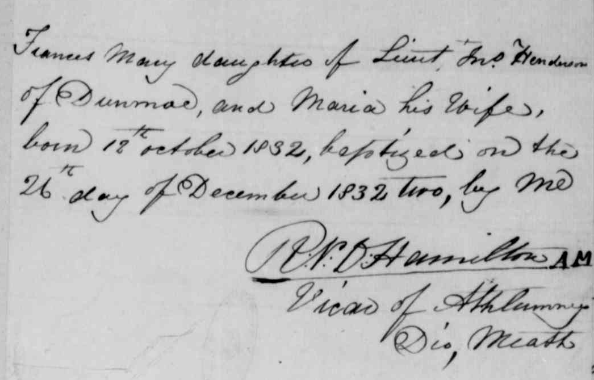 Frances Mary daughter of Lieut. Jno. Henderson
of Dunmoe, and Maria his Wife,
born 12th october 1832, baptized on the
26th day of December 1832 two, by me
R. N. D. Hamilton AM
Vicar of Athlumney
Dio, Meath